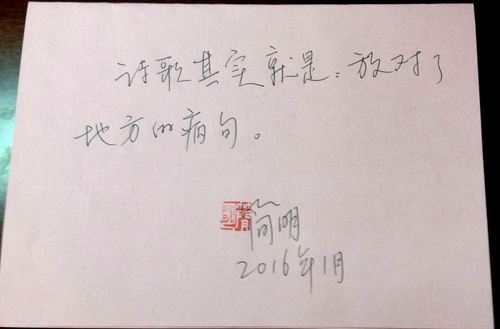 诗歌其实就是：放对了
地方的病句。
简明
2016年1月